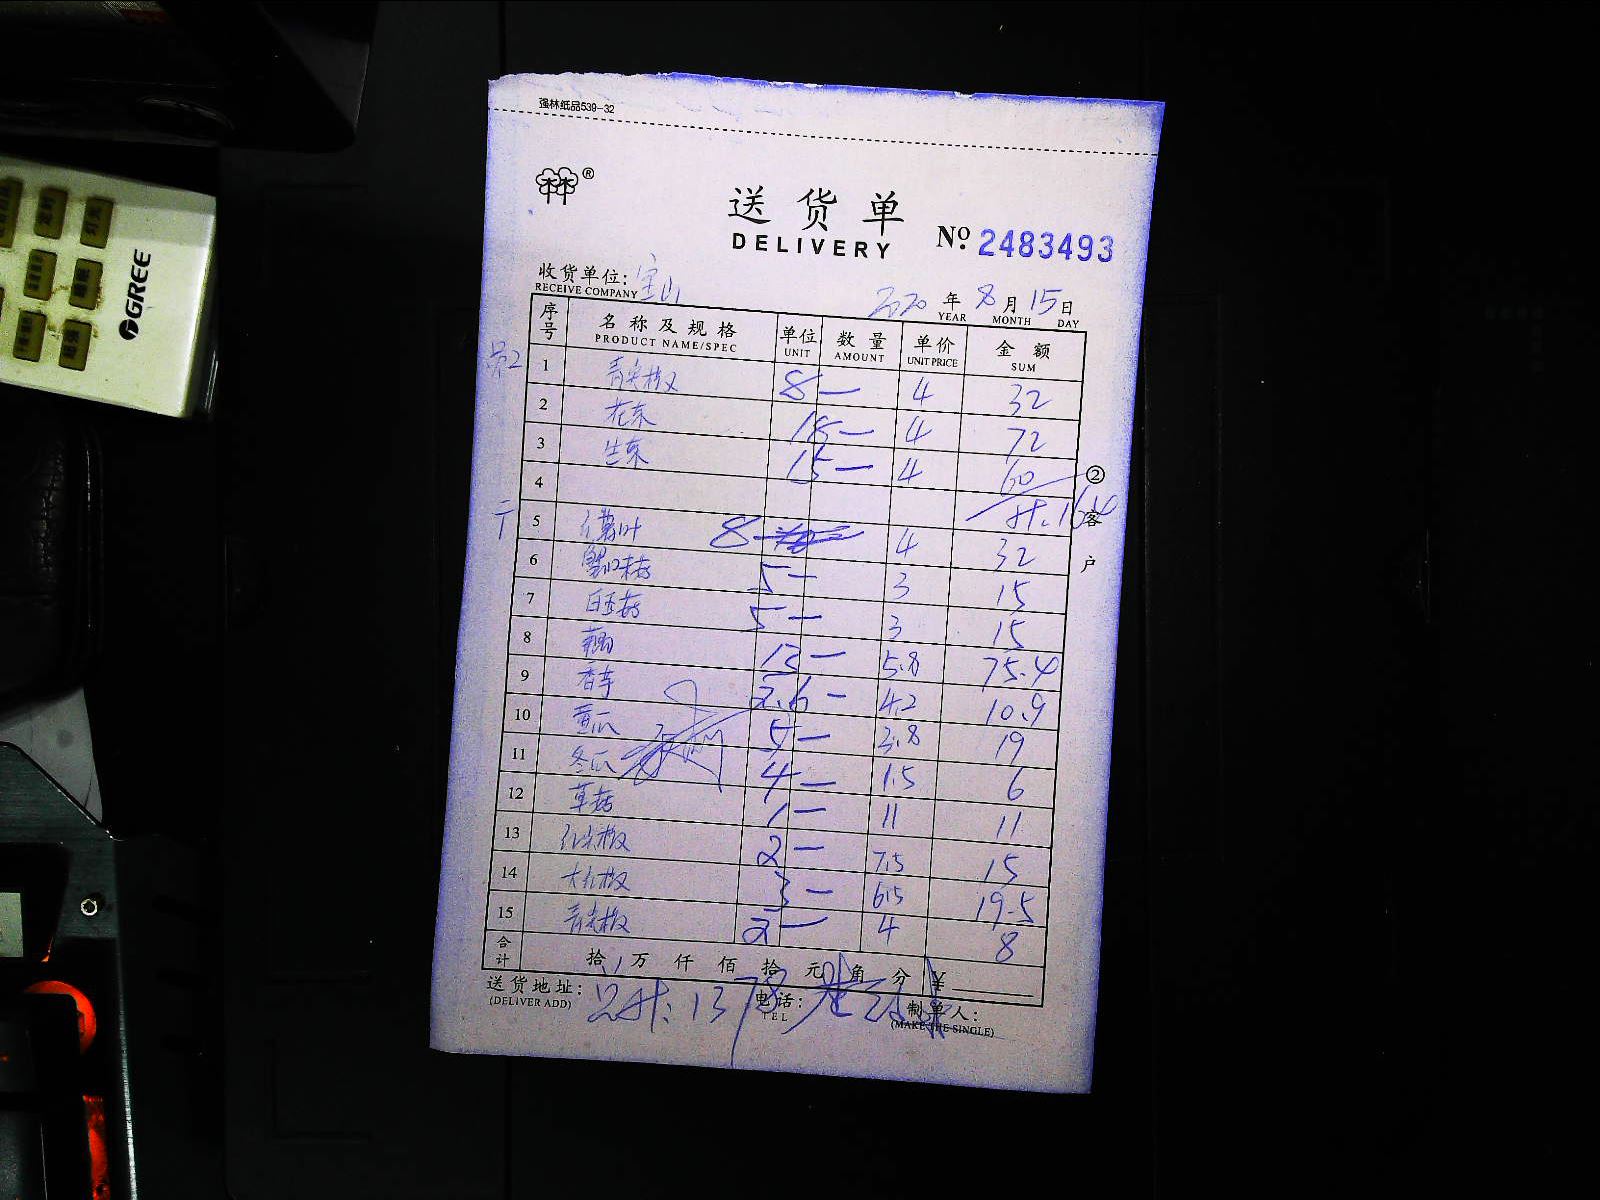 强林纸品539-32
林®
送货单
DELIVERY
No. 2483493
收货单位: 宝山
RECEIVE COMPANY
2020 年 8 月 15 日
YEAR MONTH DAY
序号 名称及规格 单位 数量 单价 金额
PRODUCT NAME/SPEC UNIT AMOUNT UNIT PRICE SUM
1 青尖椒 8— 4 32
2 花菜 18— 4 72
3 生菜 15— 4 60
4 共.164
5 8— 4 32
6 蟹味菇 5— 3 15
7 白玉菇 5— 3 15
8 藕 13— 5.8 75.4
9 香芹 2.6— 4.2 10.9
10 黄瓜 5— 3.8 19
11 冬瓜 4— 1.5 6
12 草菇 1— 11 11
13 红尖椒 2— 7.5 15
14 大红椒 3— 6.5 19.5
15 青尖椒 2— 4 8
合计 拾 万 仟 佰 拾 元 角 分 ¥
送货地址:
(DELIVER ADD)
总共: 1378
电话:
TEL
制单人:
(MAKE THE SINGLE)
② 客户
GREE